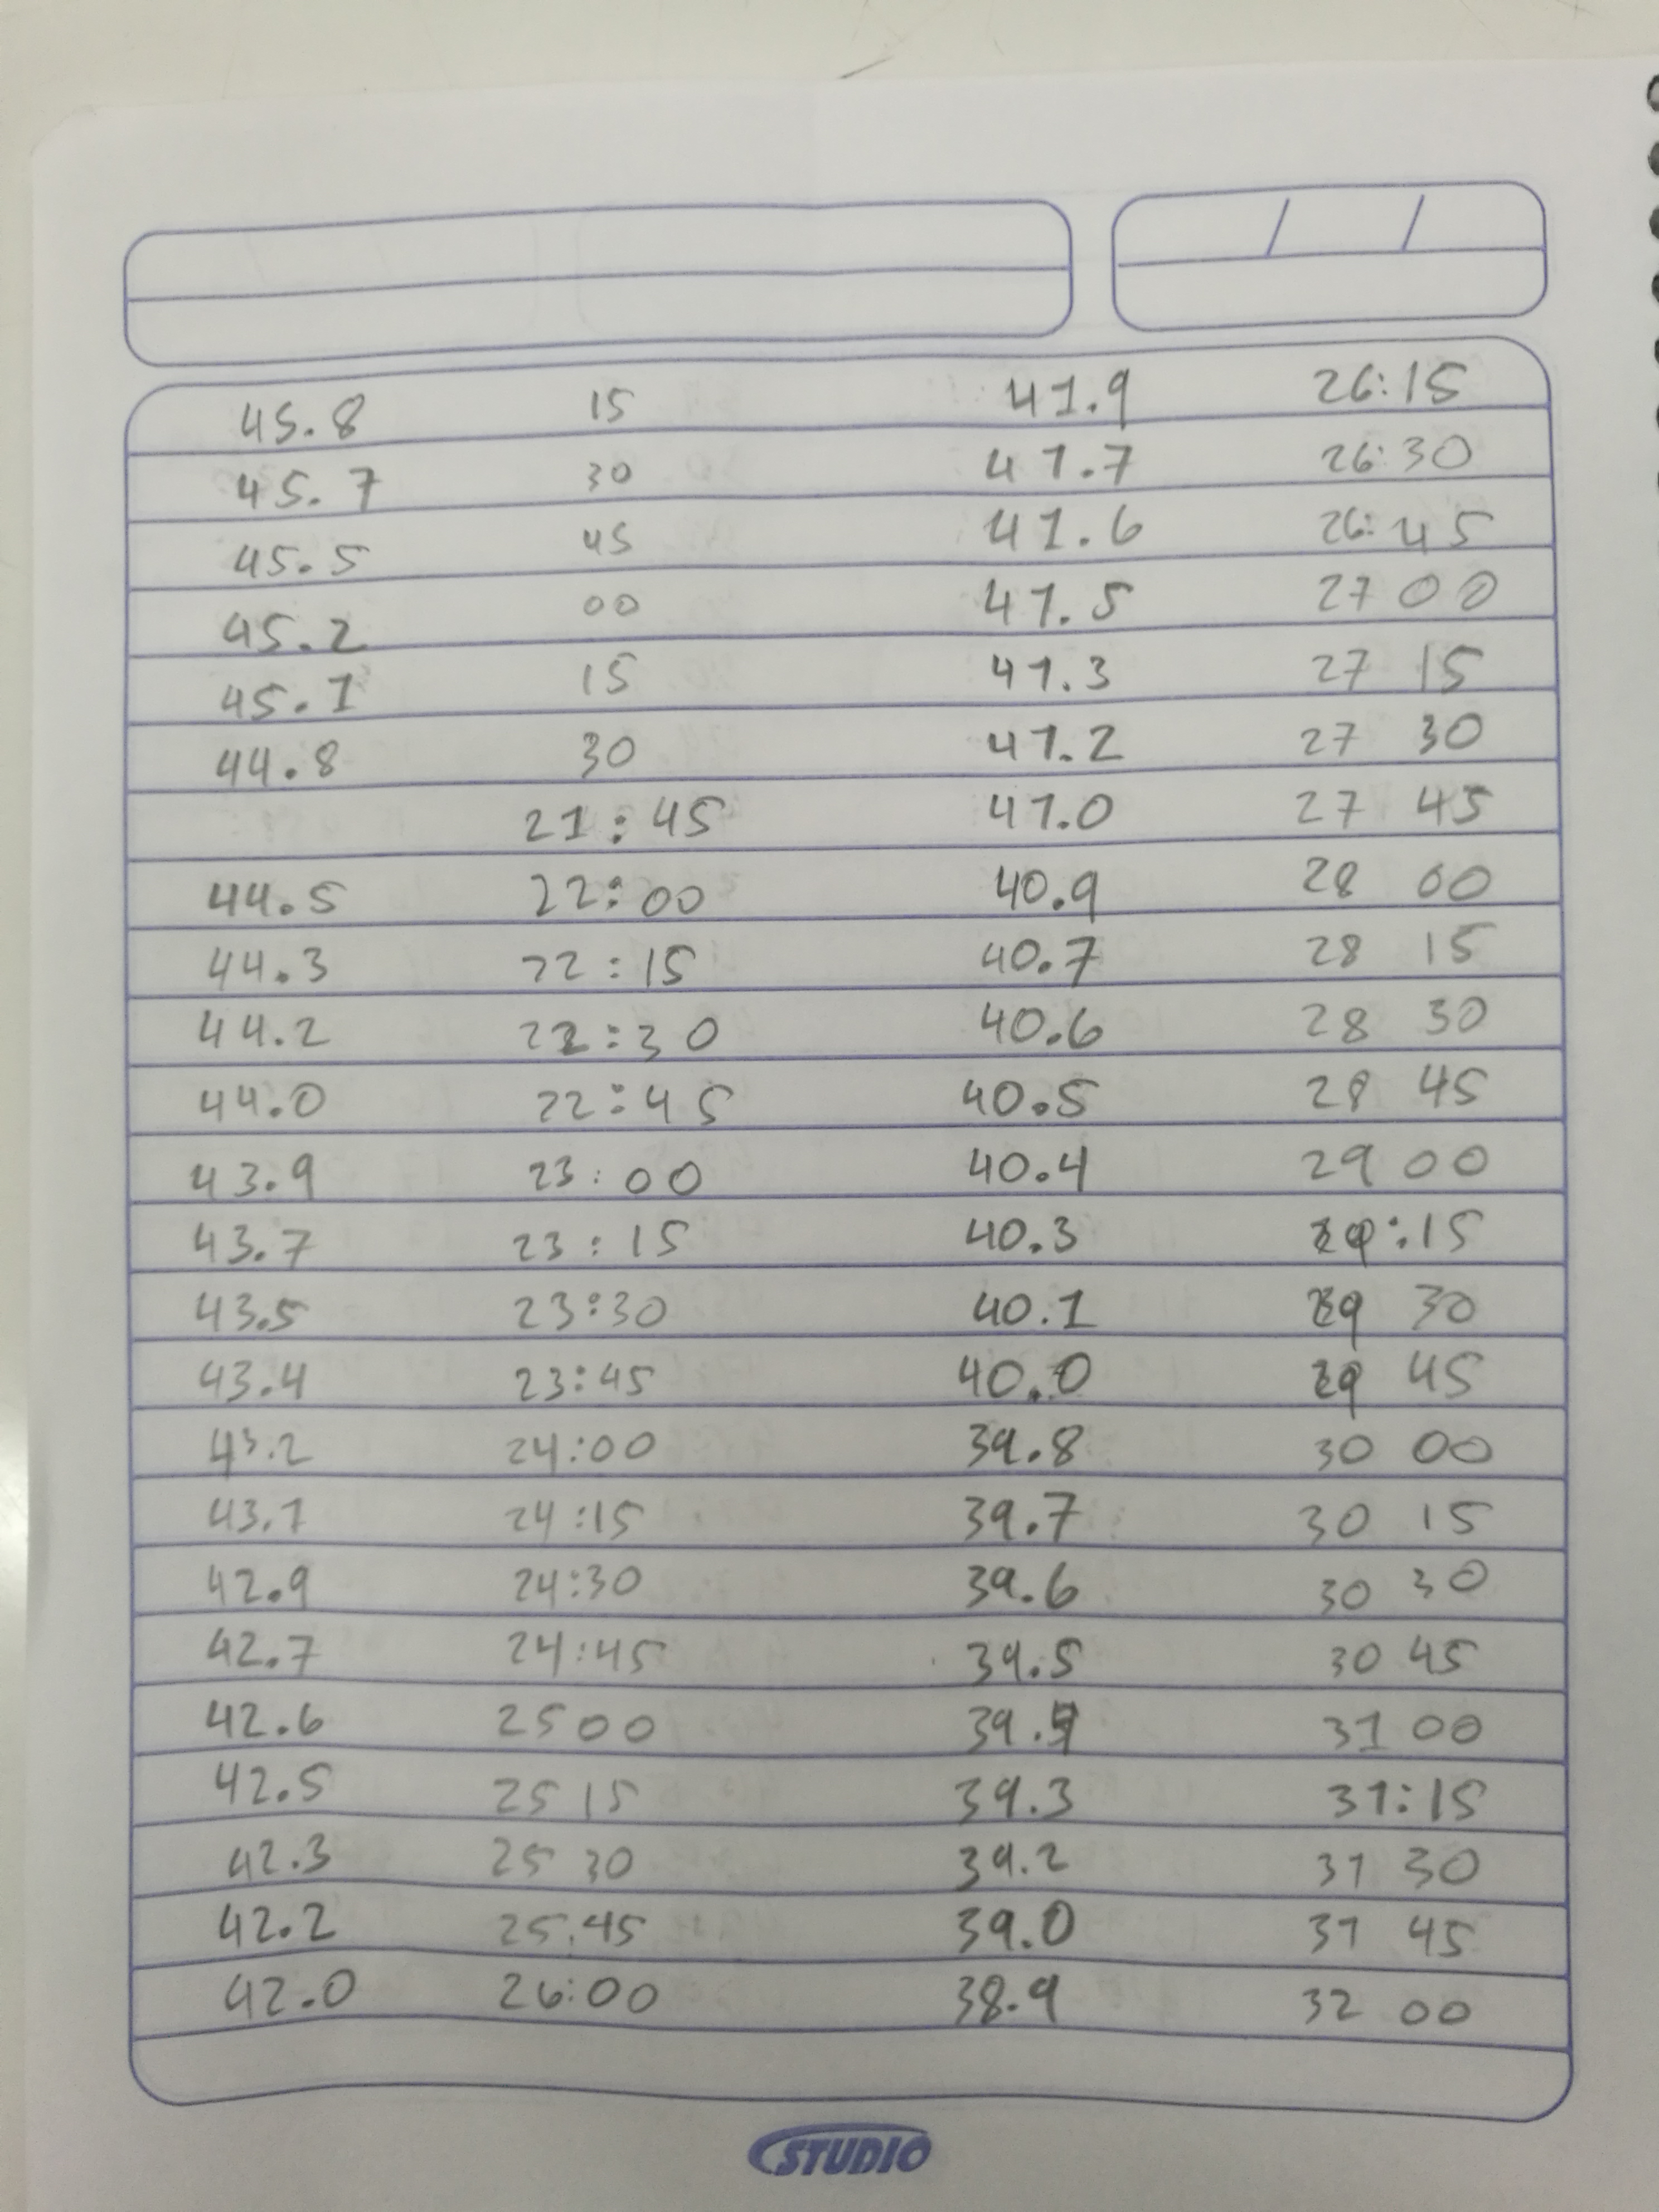 45.8 15 41.9 26:15
45.7 30 41.7 26:30
45.5 45 41.6 26:45
45.2 00 41.5 27 00
45.1 15 41.3 27 15
44.8 30 41.2 27 30
21:45 41.0 27 45
44.5 22:00 40.9 28 00
44.3 22:15 40.7 28 15
44.2 22:30 40.6 28 30
44.0 22:45 40.5 28 45
43.9 23:00 40.4 29 00
43.7 23:15 40.3 29:15
43.5 23:30 40.1 29 30
43.4 23:45 40.0 29 45
43.2 24:00 39.8 30 00
43.1 24:15 39.7 30 15
42.9 24:30 39.6 30 30
42.7 24:45 39.5 30 45
42.6 25 00 39.4 31 00
42.5 25 15 39.3 31:15
42.3 25 30 39.2 31 30
42.2 25:45 39.0 31 45
42.0 26:00 38.9 32 00
STUDIO